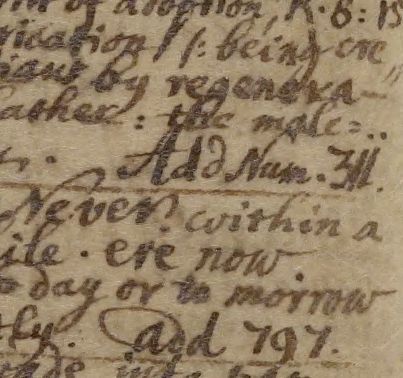 of adoption, R. 8: 15
rication /: being ere
by regenera-
ather: the male=..
Add Num. 311.
Never. within a
ile. ere now
day or to morrow
tly. add 797.